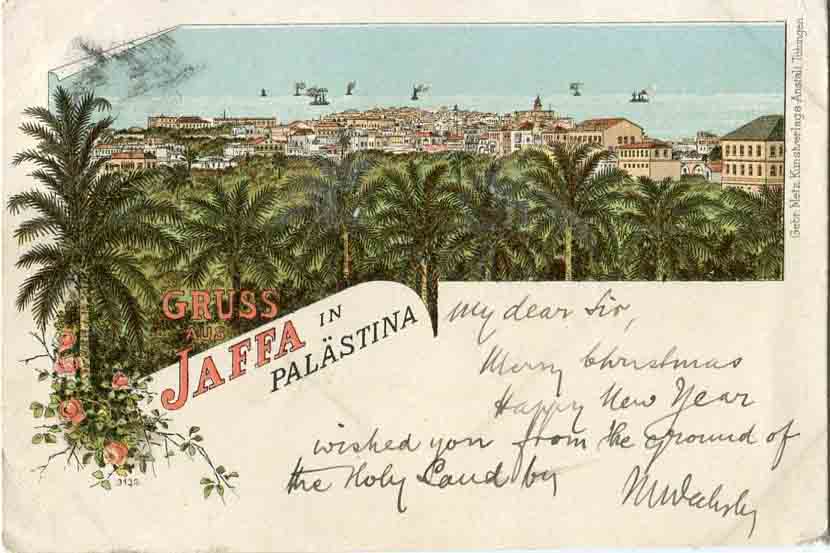 GRUSS
AUS
JAFFA IN
PALÄSTINA
Gebr. Metz, Kunstverlags-Anstalt, Tübingen.
My dear Sir,
Merry Christmas
Happy New Year
wished you from the ground of
the Holy Land by
3132